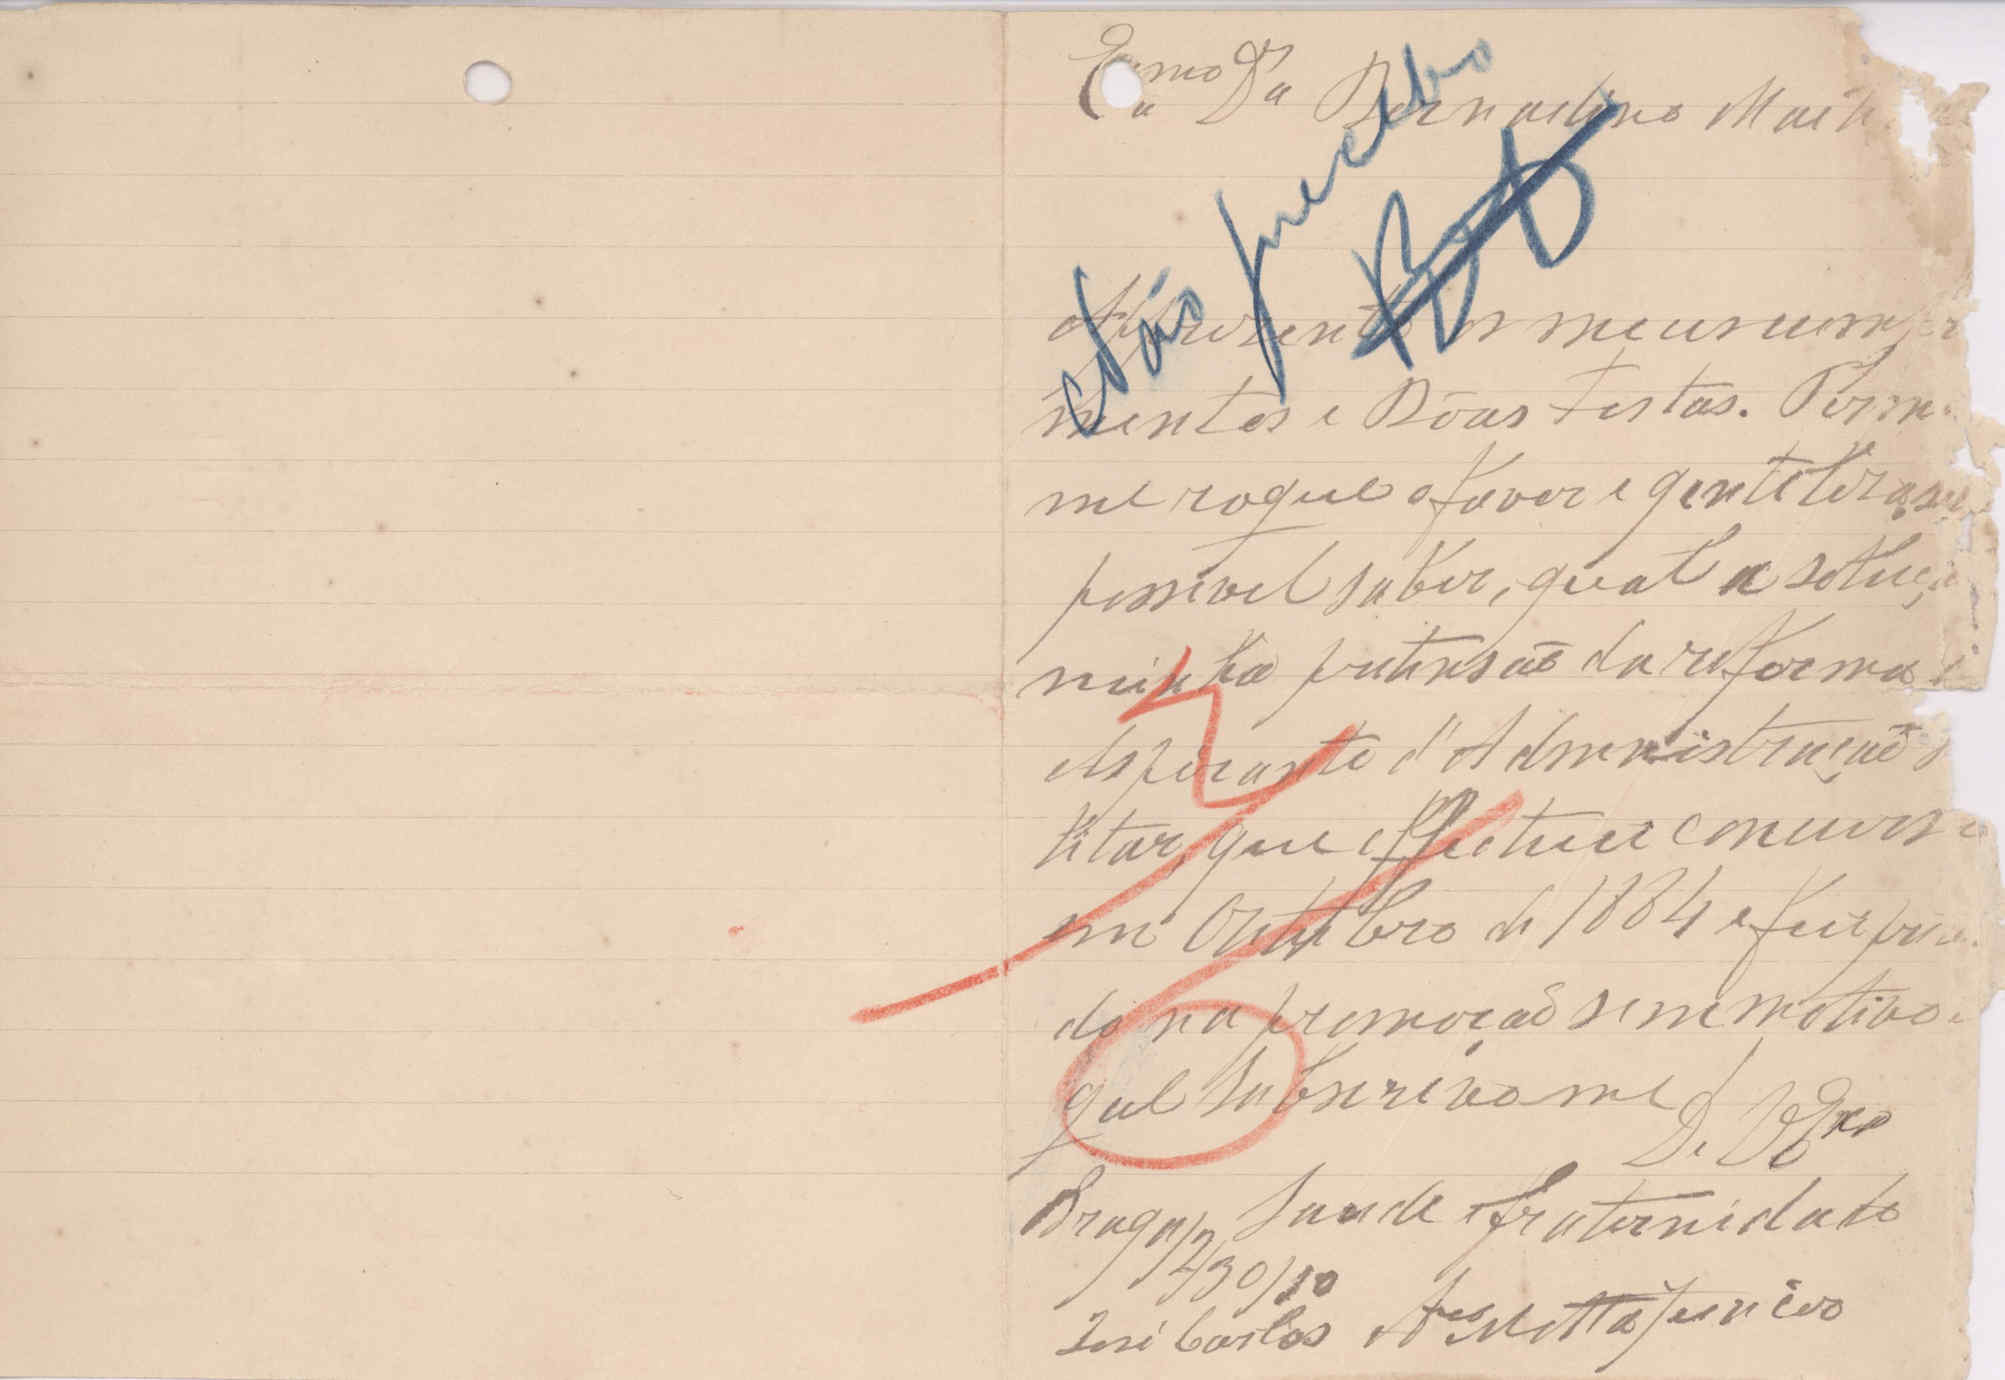 Exmo Snr
Dr Bernardino Mach
Não percebo
Appresento os meus cumpri
mentos e Bôas Festas. Permi
me rogue o favor e gentileza se
possivel saber, qual a soluçã
minha pretensão da reforma
Aspirante d'Administração
litar, que effectuei concurso
em Outubro de 1884 e fui pre
do na promoção sem motivo
que subscrevo me
De V Exca
Braga Saude e fraternidade
30/10
José Carlos Motta Junior